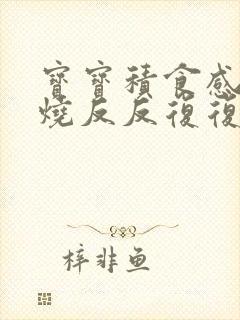 寶寶積食感
燒反反復復
梓非鱼